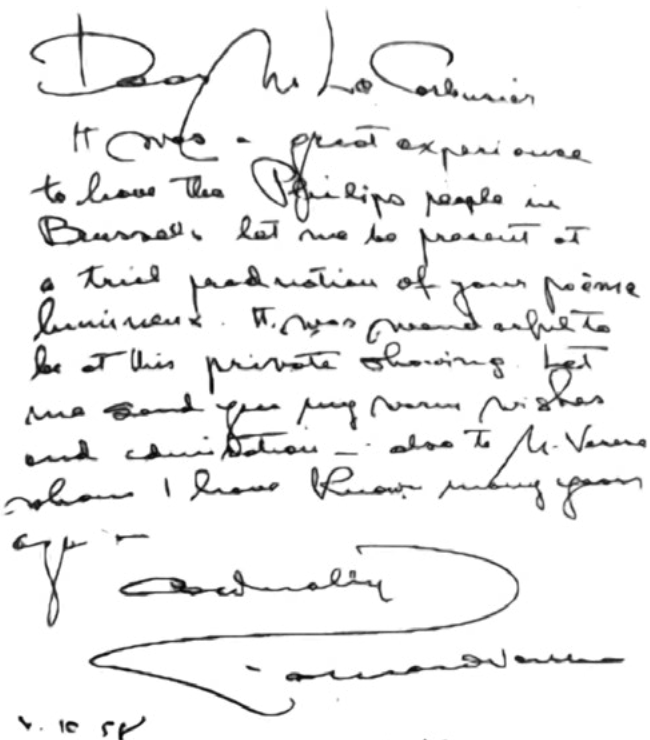 Dear M. Le Corbusier
It was a great experience
to have the Philips people in
Brussells let me be present at
a trial production of your poème
lumineux. It was wonderful to
be at this private showing. Let
me send you my warm wishes
and admiration — also to M. Varese
whom I have known many years
ago —
Cordially